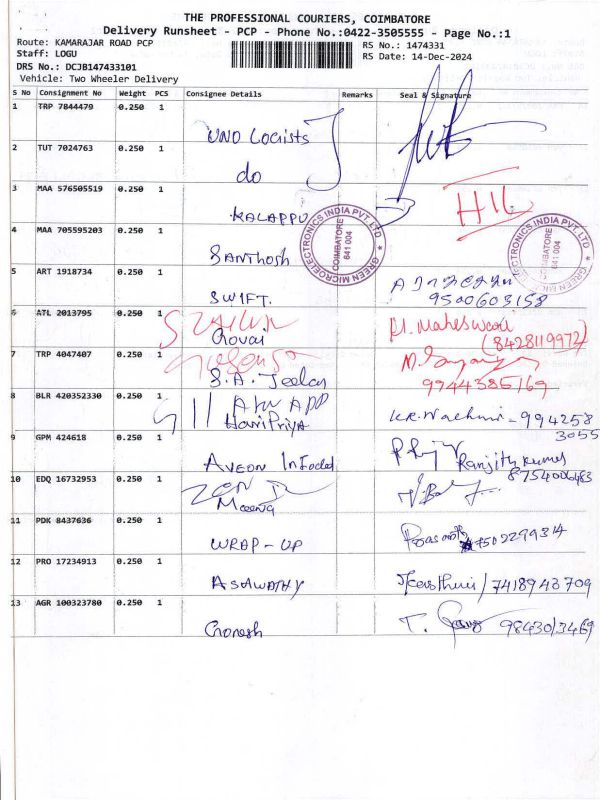 THE PROFESSIONAL COURIERS, COIMBATORE
Delivery Runsheet - PCP - Phone No.:0422-3505555 - Page No.:1
Route: KAMARAJAR ROAD PCP
RS No.: 1474331
Staff: LOGU
RS Date: 14-Dec-2024
DRS No.: DCJB147433101
Vehicle: Two Wheeler Delivery
S No Consignment No Weight PCS Consignee Details Remarks Seal & Signature
1 TRP 7844479 0.250 1
UNO Logists
2 TUT 7024763 0.250 1
do
3 MAA 576505519 0.250 1
KALAPPU
4 MAA 705595203 0.250 1
Santhosh
GREEN MICROELECTRONICS INDIA PVT LTD
COIMBATORE
641 004
5 ART 1918734 0.250 1
SWIFT.
9500603158
6 ATL 2013795 0.250 1
Govai
M. Maheswari
(8428119972)
7 TRP 4047407 0.250 1
S.A. Jeelay
9744385169
8 BLR 420352330 0.250 1
HariPriya
994258
3055
9 GPM 424618 0.250 1
AVEON Infodal
Ranjith Kumar
8754006483
10 EDQ 16732953 0.250 1
Meena
11 PDK 8437636 0.250 1
WRAP-UP
7502299314
12 PRO 17234913 0.250 1
ASAWATHY
/ 7418943709
13 AGR 100323780 0.250 1
Ganesh
T. 9843013469